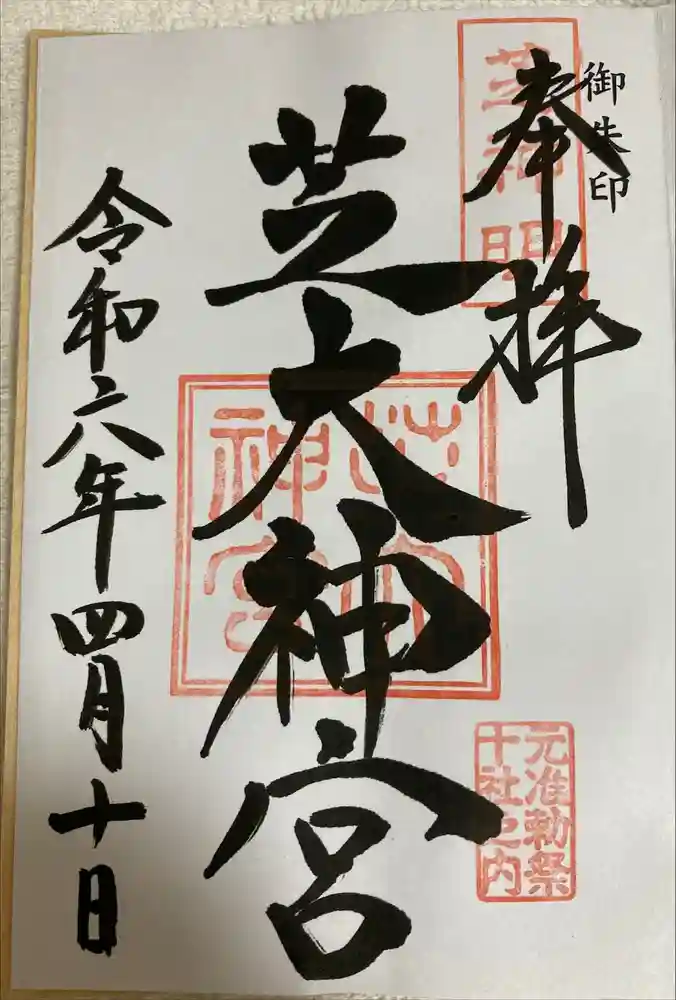 御朱印
奉拝
芝神明
芝大神宮
芝大
神宮
元准勅祭
十社之内
令和六年四月十日